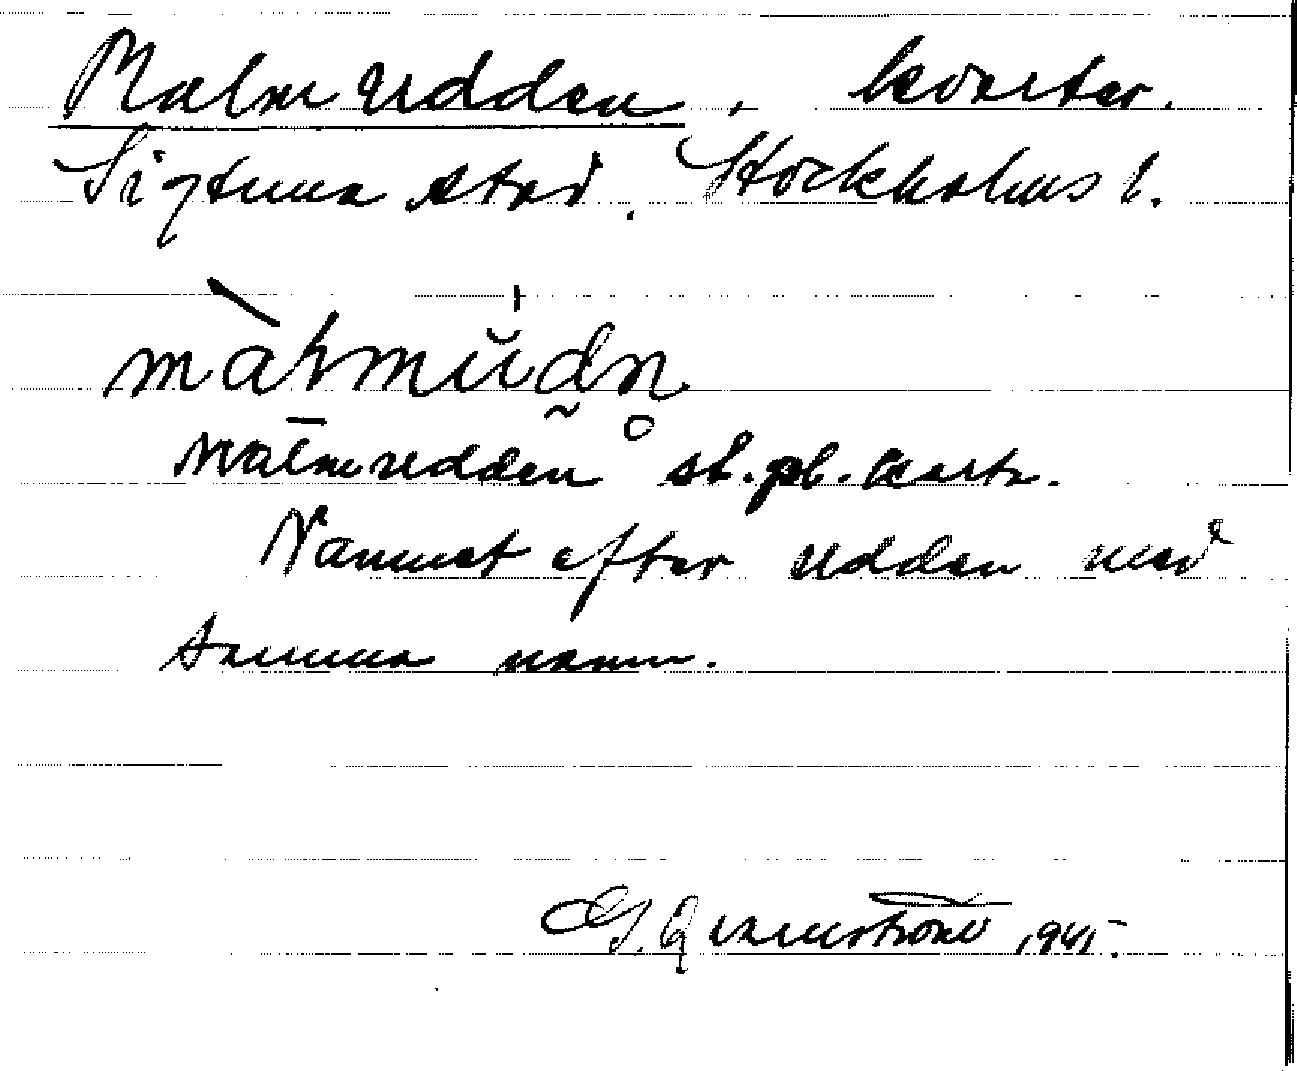 Malmudden, kvarter.
Sigtuna stad. Stockholms l.
màlmŭdn̥
Malmudden st.pl.kart.
Namnet efter udden med
samma namn.
G. Qvarnström 1945